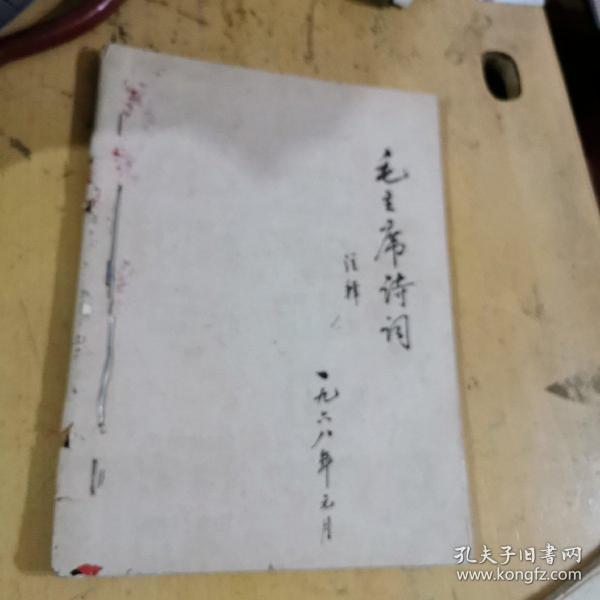 毛主席诗词
注释
一九六八年元月
孔夫子旧書网
www.kongfz.com